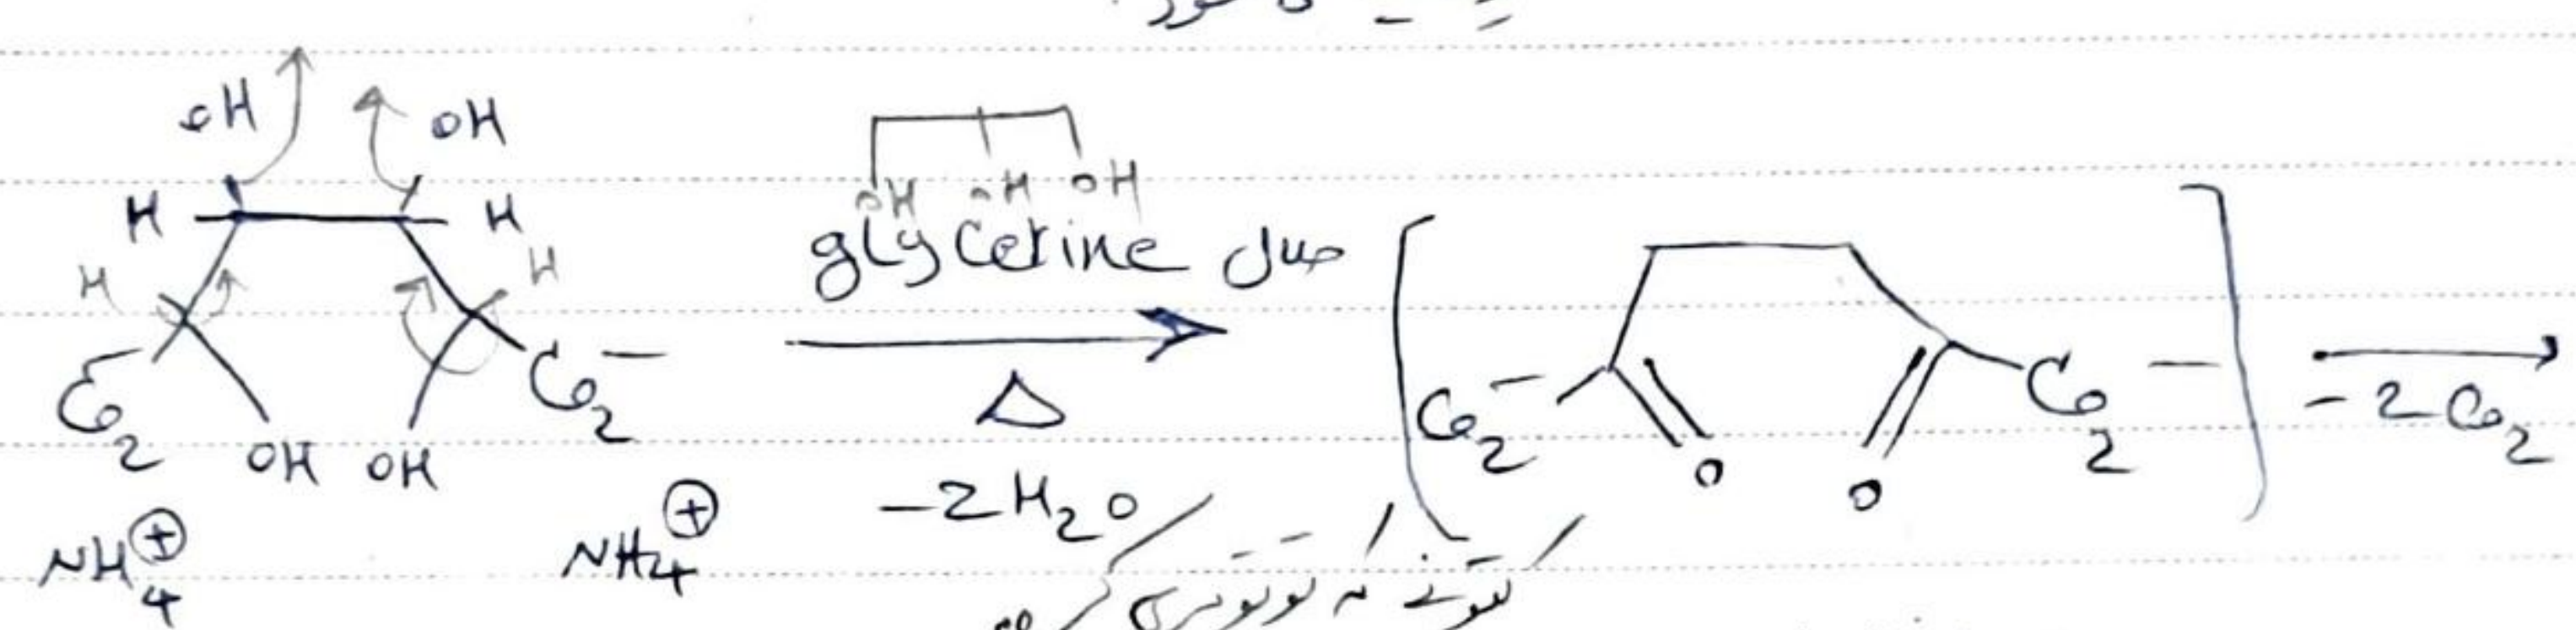 OH OH
H H
H H
CO2⁻ CO2⁻
OH OH
NH4⊕ NH4⊕
OH OH OH
glycerine حلال
Δ
-2H2O
CO2⁻ CO2⁻
O O
-2CO2